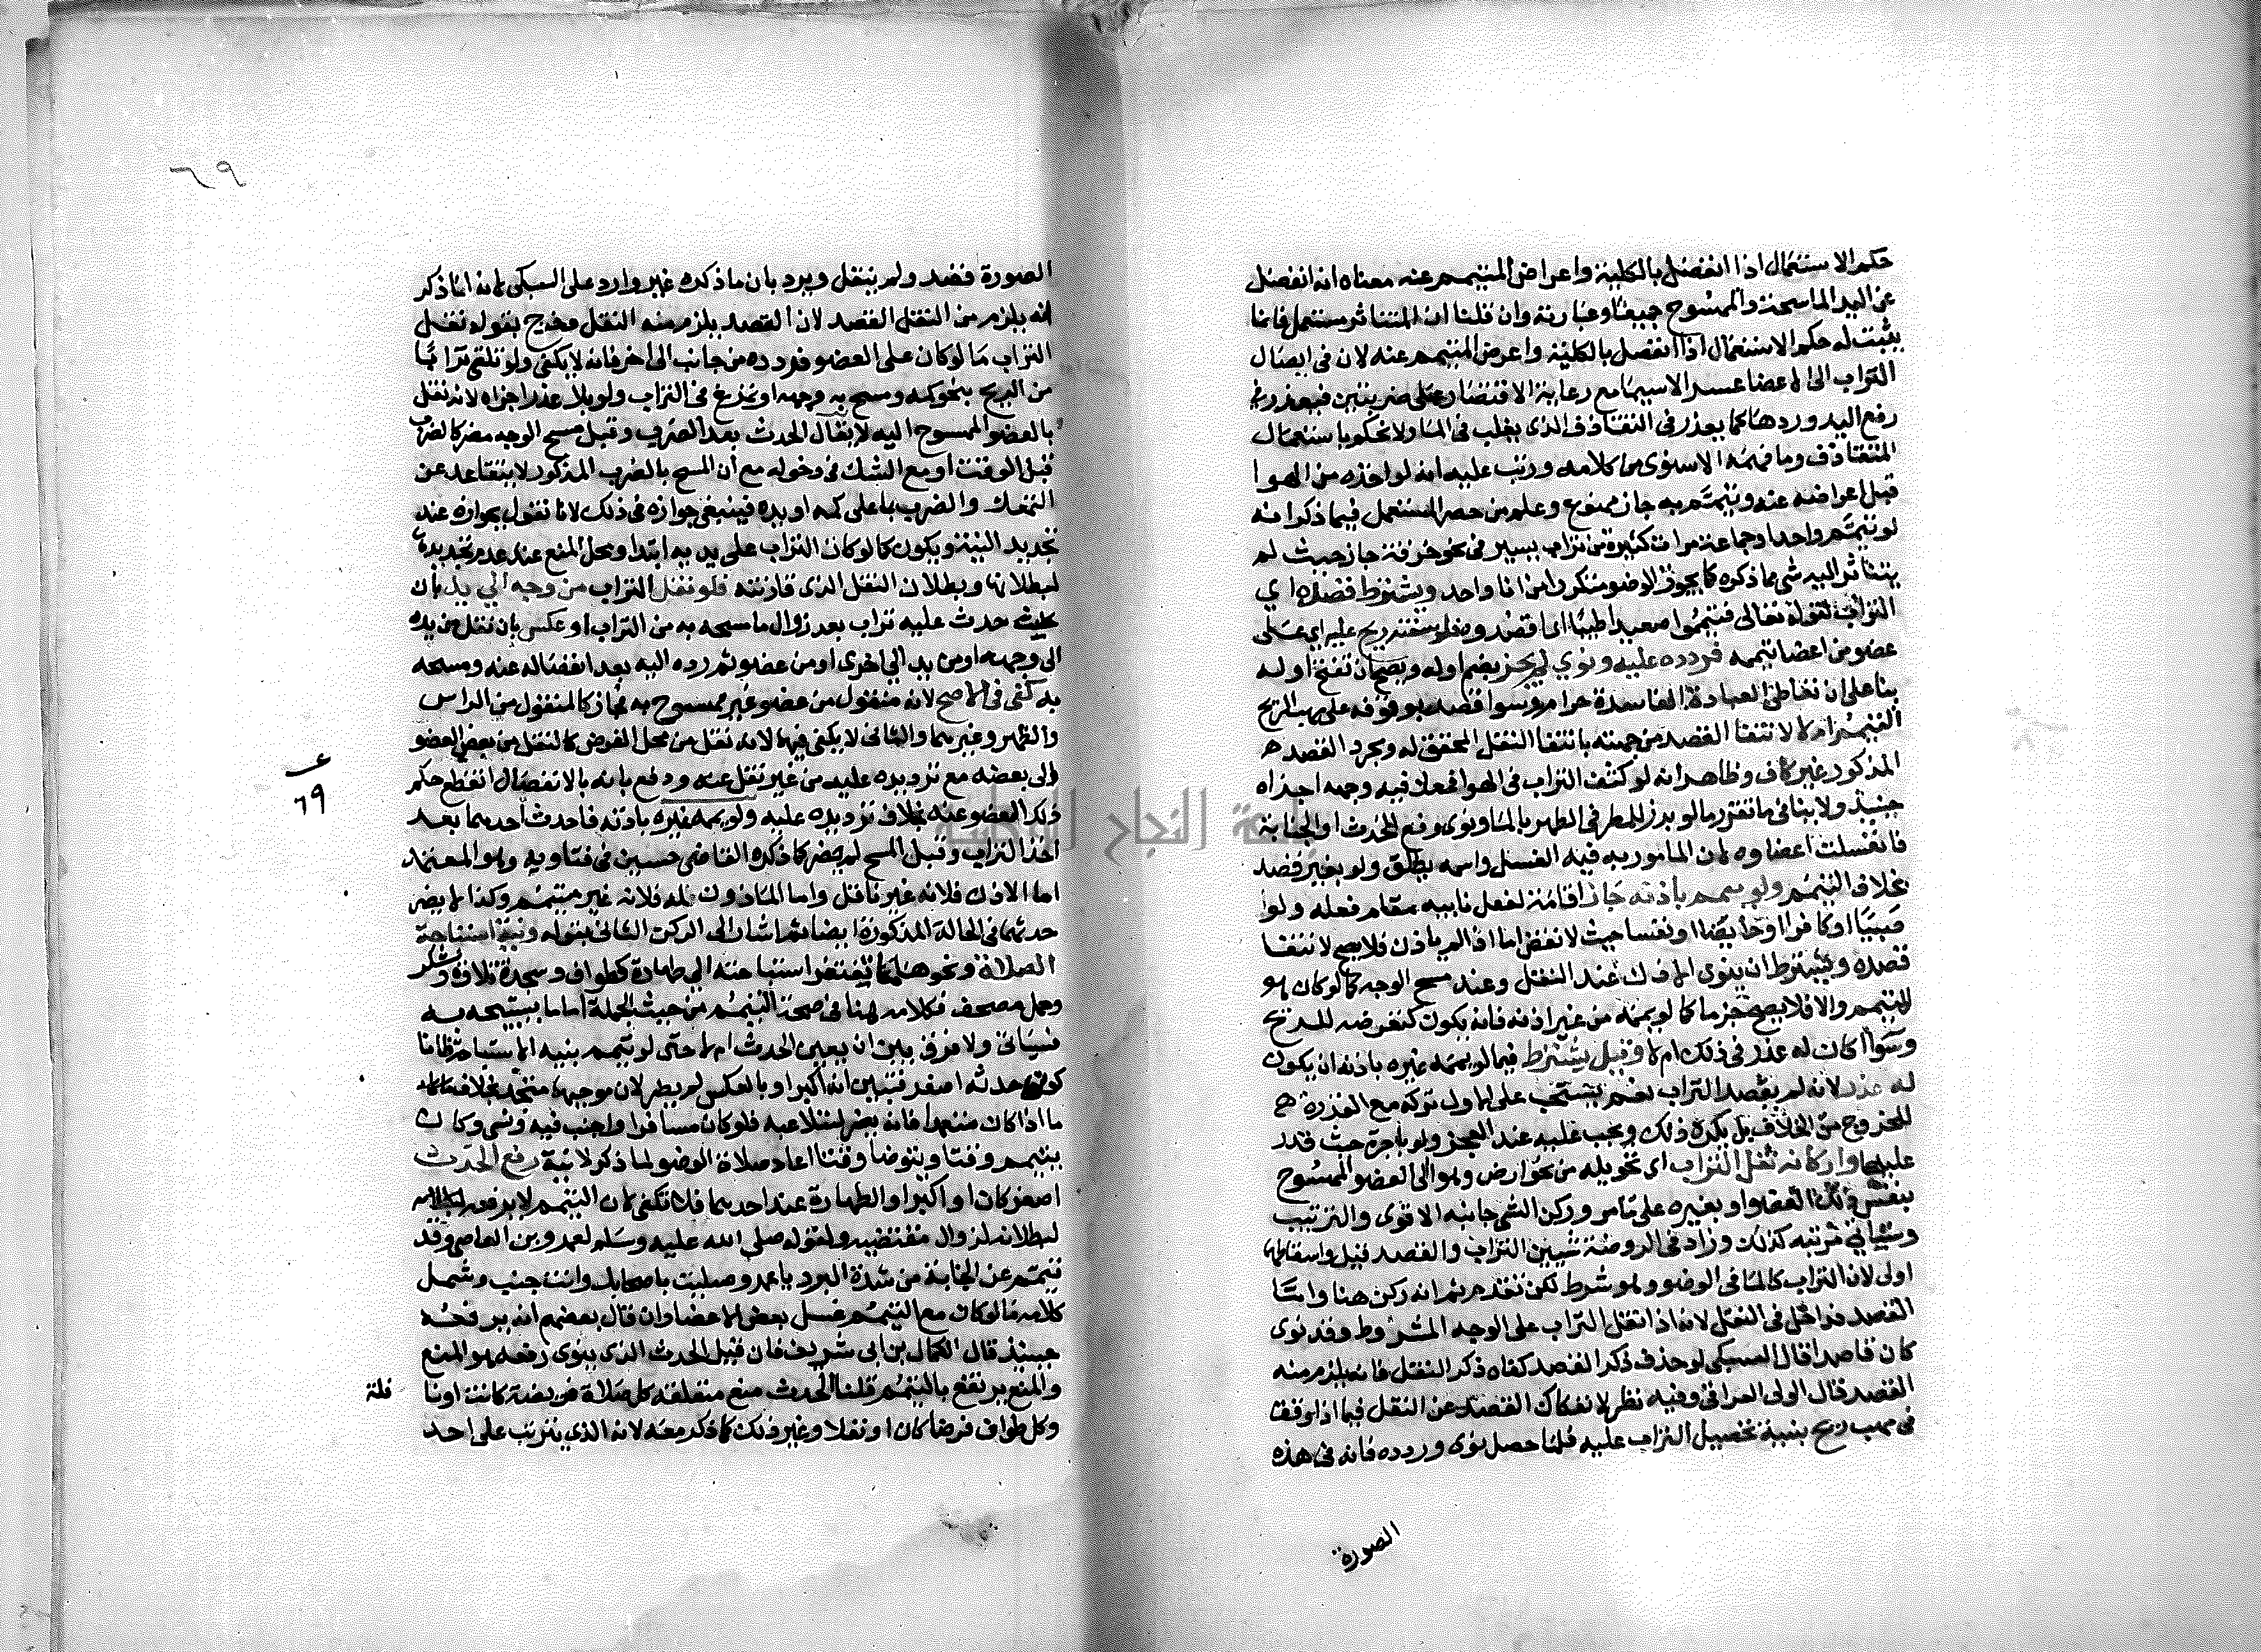 حكم الاستعمال اذا انفصل بالكلية واعراض المتيمم عنه معناه انه انفصل
عن اليد الماسحة والممسوح جميعا وعبارته وان قلنا ان المتناثر مستعمل فانما
يثبت له حكم الاستعمال اذا انفصل بالكلية واعرض المتيمم عنه لان في ايصال
التراب الى الاعضا عسرا لاسيما مع رعاية الاقتصار على ضربتين فيعذر في
رفع اليد وردها كما يعذر في التقاذف الذي يغلب في الما ولا نحكم باستعمال
المتقاذف وما فهمه الاسنوى من كلامه ورتب عليه انه لو اخذه من الهوا
قبل اعراضه عنه وتيمم به جاز ممنوع وعلم من حصر المستعمل فيما ذكر انه
لو تيمم واحد او جماعة مرات كثيرة من تراب يسير في نحو خرقة جاز حيث لم
يتناثر اليه شى مما ذكره كما يجوز الوضو متكررا من انا واحد ويشترط قصده اي
التراب لقوله تعالى فتيمموا صعيدا طيبا اى اقصدوه فلو سفته ريح عليه اي على
عضو من اعضا تيممه فردده عليه ونوي لم يجز بضم اوله ويصح ان تفتح اوله
بنا على ان تعاطى العبادة الفاسدة حرام وسوا قصد بوقوفه على مهب الريح
التيمم ام لا لانتفا القصد من جهته بانتفا النقل المحقق له ومجرد القصد
المذكور غير كاف وظاهر انه لو كثف التراب في الهوا فمعك فيه وجهه اجزاه
حينيذ ولا ينافي ما تقرر ما لو برز للمطر في الطهر بالما ونوى رفع الحدث او الجنابة
فانغسلت اعضاوه لان المامور به فيه الغسل واسمه يطلق ولو بغير قصد
بخلاف التيمم ولو يمم باذنه جاز اقامة لفعل نايبه مقام فعله ولو
صبيا او كافرا او حايضا او نفسا حيث لا نقض اما اذا لم ياذن فلا يصح لانتفا
قصده ويشترط ان ينوى الاذن عند النقل وعند مسح الوجه كما لو كان هو
المتيمم والا فلا يصح جزما كما لو يممه من غير اذنه فانه يكون كتعرضه للريح
وسوا كان له عذر في ذلك ام لا وقيل يشترط فيما لو يممه غيره باذنه ان يكون
له عذر لانه لم يقصد التراب نعم يستحب على الاول تركه مع القدرة
للخروج من الخلاف بل يكره ذلك ويجب عليه عند العجز ولو باجرة حيث قدر
عليها واركانه نقل التراب اى تحويله من نحو ارض وهوا الى العضو الممسوح
بنفس ذلك العضو او بغيره على ما مر وركن الشى جانبه الاقوى والترتيب
وسياتي مرتبه كذلك وزاد في الروضة شيين التراب والقصد قيل واسقاطهما
اولى لان التراب كالما في الوضو وهو شرط لكن تقدم ثم انه ركن هنا واما
القصد فداخل في النقل لانه اذا نقل التراب على الوجه المشروط وقد نوى
كان قاصدا قال السبكى لو حذف ذكر القصد كفاه ذكر النقل فانه يلزم منه
القصد قال الولى العراقى وفيه نظر لانفكاك القصد عن النقل فيما اذا وقف
في مهب ريح بنية تحصيل التراب عليه فلما حصل نوى وردده فانه في هذه
الصورة
٦٩
الصورة قصد ولم ينقل ويرد بان ما ذكره غير وارد على السبكى لانه انما ذكر
انه يلزم من النقل القصد لان القصد يلزم منه النقل وخرج بقوله نقل
التراب ما لو كان على العضو فردده من جانب الى اخر فانه لا يكفى ولو تلقى ترابا
من الريح بنحو كمه ومسح به وجهه او تمرغ في التراب ولو بلا عذر اجزاه لانه نقل
بالعضو الممسوح اليه لا يقال الحدث بعد الضرب وقبل مسح الوجه مضر كالضرب
قبل الوقت او مع الشك في دخوله مع ان المسح بالضرب المذكور لا يتقاعد عن
التمعك والضرب بما على كمه او يده فينبغى جوازه في ذلك لانا نقول يجوازه عند
تجديد النية ويكون كما لو كان التراب على يديه ابتدا ومحل المنع عند عدم تجديدها
لبطلانها وبطلان النقل الذى قارنته فلو نقل التراب من وجه الى يد بان
حدث عليه تراب بعد زوال ما مسحه به من التراب او عكس بان نقل من يده
الى وجهه او من يد الى اخرى او من عضو ثم رده اليه بعد انفصاله عنه ومسحه
به كفى في الاصح لانه منقول من عضو غير ممسوح به فجاز كالمنقول من الراس
والظهر وغيرهما والثانى لا يكفى فيهما لانه نقل من محل الفرض كالنقل من بعض العضو
الى بعضه مع ترديده عليه من غير نقل عنه ودفع بانه بالانفصال انقطع حكم
ذلك العضو عنه بخلاف ترديده عليه ولو يممه غيره باذنه فاحدث احدهما بعد
اخذ التراب وقبل المسح لم يضر كما ذكره القاضى حسين في فتاويه وهو المعتمد
اما الاذن فلانه غير ناقل واما الماذون له فلانه غير متيمم وكذا لا يضر
حدثهما في الحالة المذكورة ايضا ثم اشار الى الركن الثانى بقوله ونية استباحة
الصلاة ونحوها مما تفتقر استباحته الى طهارة كطواف وسجدة تلاوة وشكر
وحمل مصحف فكلامه هنا في صحة التيمم من حيث الجملة اما ما يستبيحه به
فسياتى ولا فرق بين ان يعين الحدث ام لا حتى لو تيمم بنية الاستباحة ظانا
كون حدثه اصغر فتبين انه اكبر او بالعكس لم يضر لان موجبهما متحد بخلاف
ما اذا كان متعمدا فانه يضر لتلاعبه فلو كان مسافرا واجنب فيه ونسى وكان
يتيمم وقتا ويتوضا وقتا اعاد صلاة الوضو لما ذكر لا نية رفع الحدث
اصغر كان او اكبر او الطهارة عند احدهما فلا تكفى لان التيمم لا يرفعه
لبطلانه لزوال مقتضيه ولقوله صلى الله عليه وسلم لعمرو بن العاص وقد
تيمم عن الجنابة من شدة البرد يا عمرو صليت باصحابك وانت جنب وشمل
كلامه ما لو كان مع التيمم غسل بعض الاعضا وان قال بعضهم انه يرفعه
حينيذ قال الكمال بن ابى شريف فان قيل الحدث الذى ينوى رفعه هو المنع
والمنع يرتفع بالتيمم قلنا الحدث منع متعلقه كل صلاة فريضة كانت او نا
فلة
وكل طواف فرضا كان او نفلا وغير ذلك مما ذكر معه لانه الذي يترتب على احد
٦٩